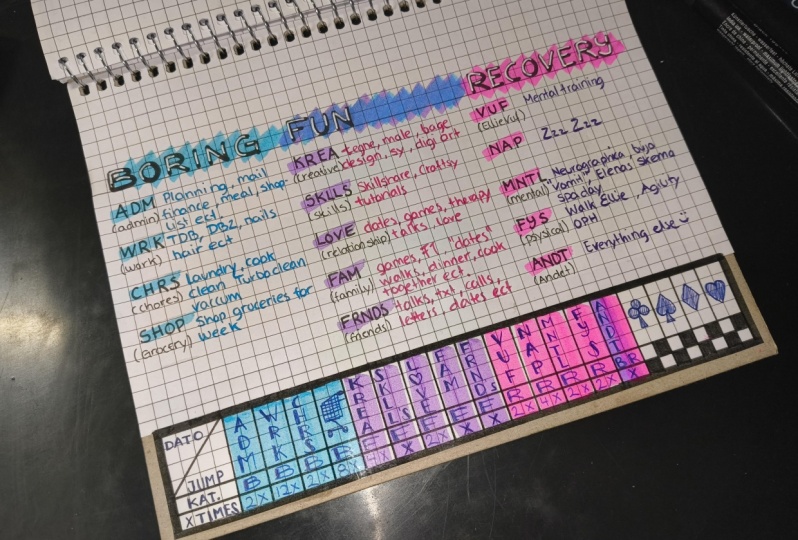 BORING
ADM Planning, mail
(admin) finance, meal shop
list ect.
WRK TDB, DBZ, nails
(work) hair ect
CHRS Laundry, cook
(chores) clean Turboclean
vaccum
SHOP Shop groceries for
(Grocery) week
FUN
KREA tegne, male, bage
(creative) design, sy, digi art
SKLLS Skillshare, Craftsy
(skills) tutorials
LOVE dates, games, therapy
(relationship) talks, love
FAM games, "dates"
(family) walks, dinner, cook
together ect.
FRNDS talks, txt, calls,
(friends) letters dates ect
RECOVERY
VUF Mental training
(EllieVuf)
NAP Zzz Zzz
MNTL Neurographica buja
(mental) "Vamil", Elenas Skema
spaday
FYS Walk Ellie, Agility
(physical) OPH
ANDT Everything else
(Andet)
DATO ADM WRK CHRS KREA SKLLS LOVE FAM FRNDS VUF NAP MNTL FYS ANDT
JUMP
KAT. B B B B E E E E E R R R R BR
XTIMES 2X 12X 2X 8X 4X X 2X X X 2X 4X 2X 2X X